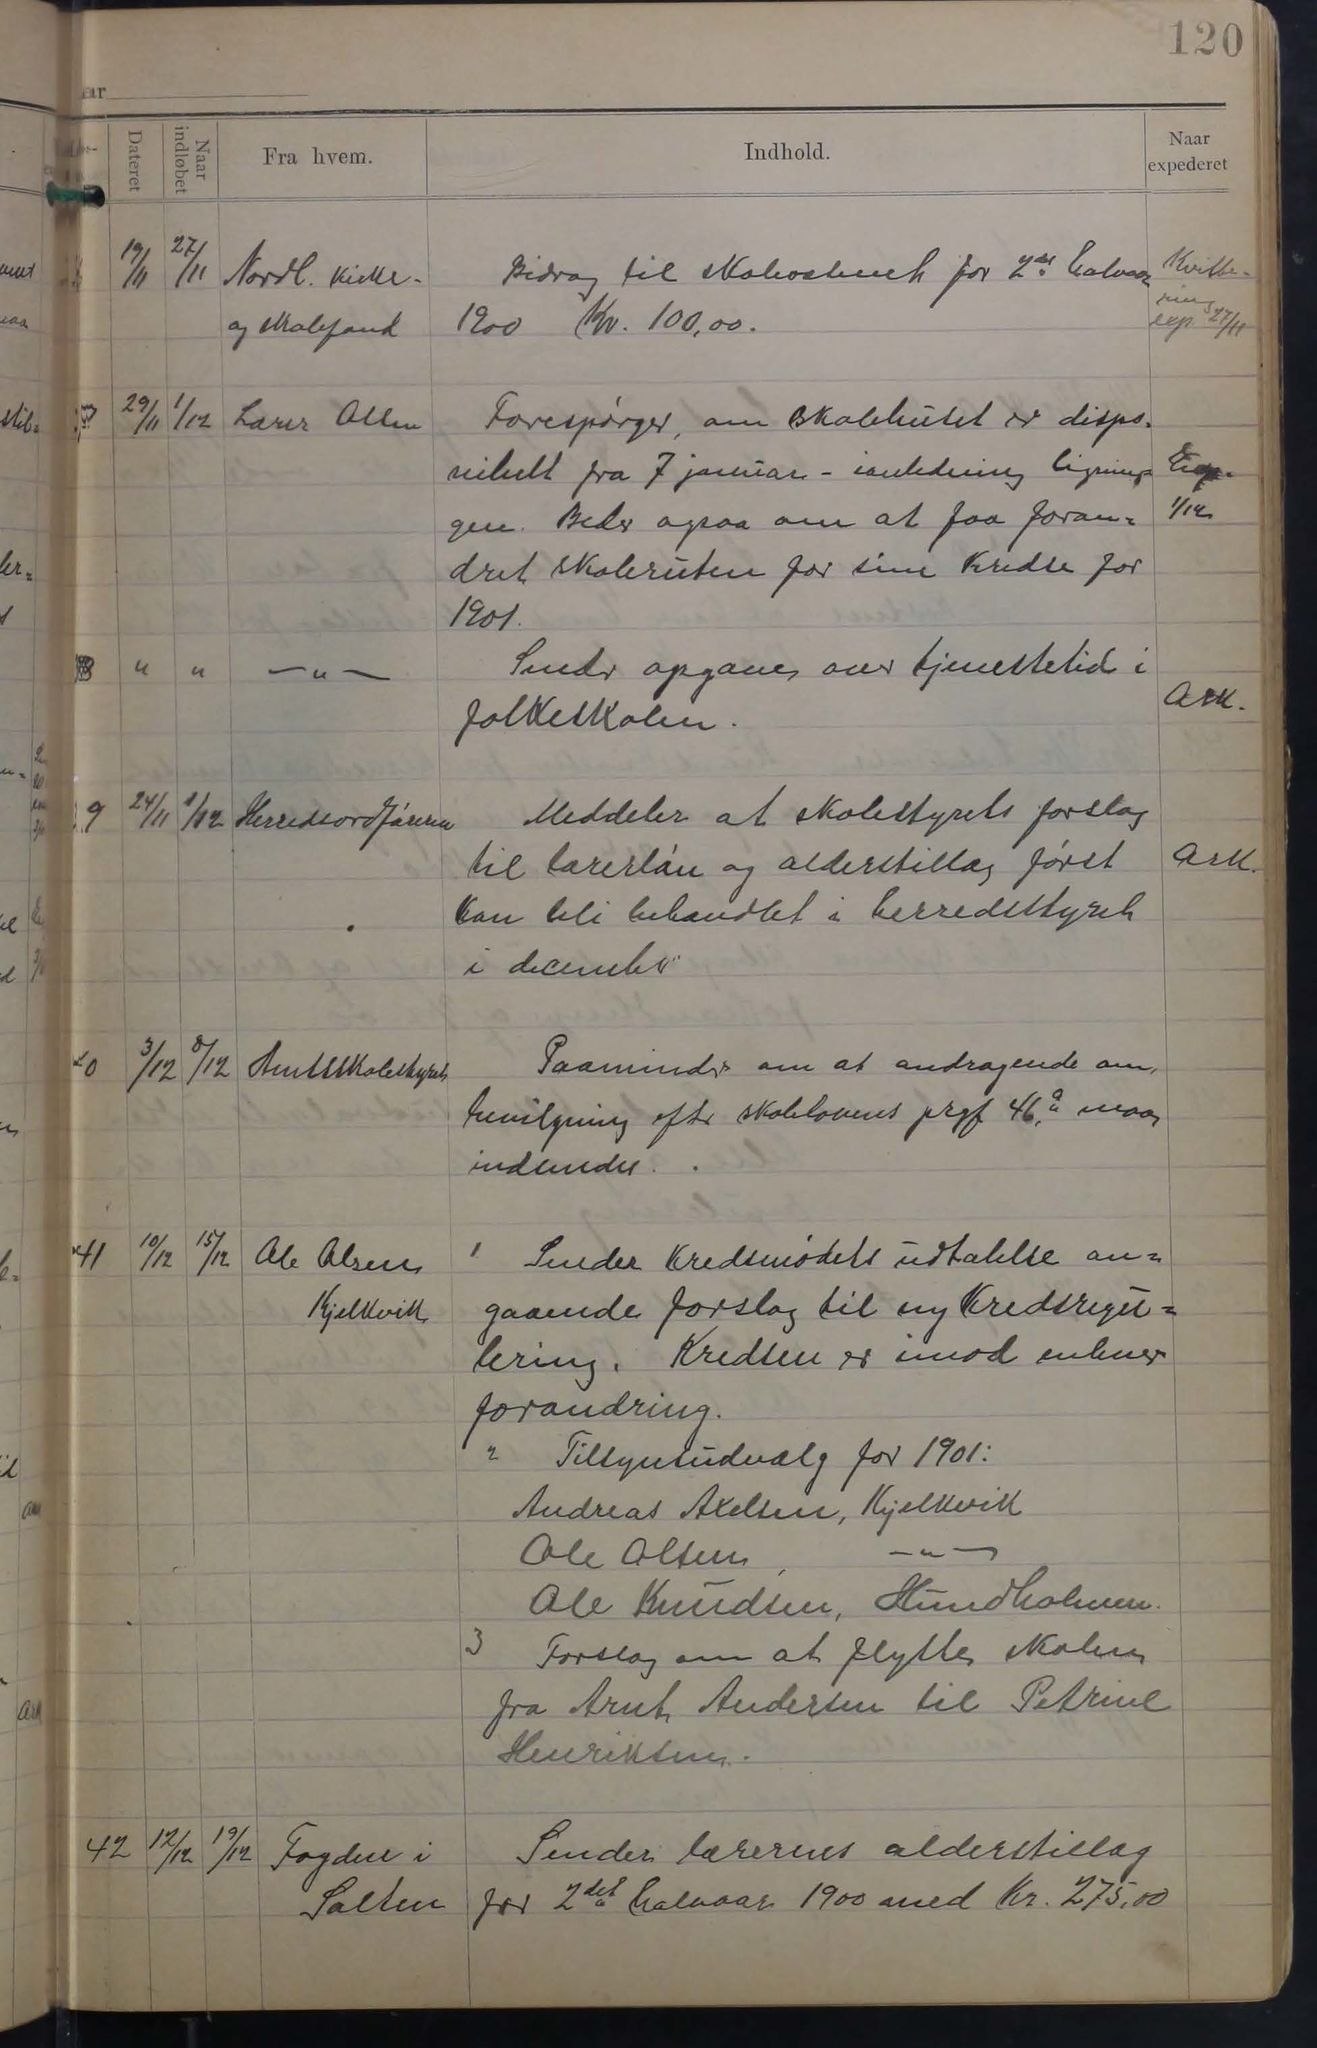 120
aar
Dateret
Naar indløbet
Fra hvem.
Indhold.
Naar expederet
19/11 27/11 Nordl. kirke- Bidrag til skolevæsenet for 2det halvaar Kvitte-
og skolefond 1900 Kr. 100,00. ring exp 27/11
29/11 1/12 Lærer Olsen Forespørger, om skolehuset er dispo-
nibelt fra 7 januar - ianledning lignin- Exp.
gen. Beder ogsaa om at faa foran- 1/12
dret skoleruten for sine kredse for
1901.
" " —"— Sender opgave over tjenestetid i
folkeskolen. Ark.
9 24/11 1/12 Herredsordføreren Meddeler at skolestyrets forslag
til lærerløn og alderstillæg først Ark.
kan bli behandlet i herredsstyret
i december
40 3/12 8/12 Amtsskolestyret Paaminder om at andragende om
bevilgning efter skolelovens prgf 46,a maa
indsendes.
41 10/12 15/12 Ole Olsen 1 Sender kredsmødets udtalelse an-
Kjelkvik gaaende forslag til ny kredsregu-
lering. Kredsen er imod enhver
forandring.
2 Tilsynsudvalg for 1901:
Andreas Axelsen, Kjelkvik
Ole Olsen, —"—
Ole Knudsen, Hundholmen.
3 Forslag om at flytte skolen
fra Arnt Andersen til Petrine
Henriksen.
42 12/12 19/12 Fogden i Sender lærernes alderstillæg
Salten for 2det halvaar 1900 med Kr. 275,00